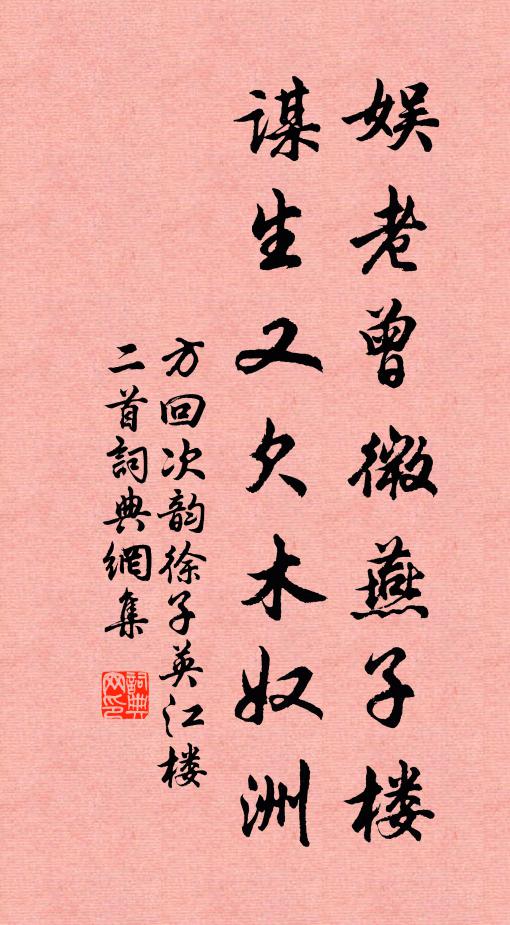 娱老曾微燕子楼
谋生又欠木奴洲
方回次韵徐子英江楼
二首詞典網集
詞典網印